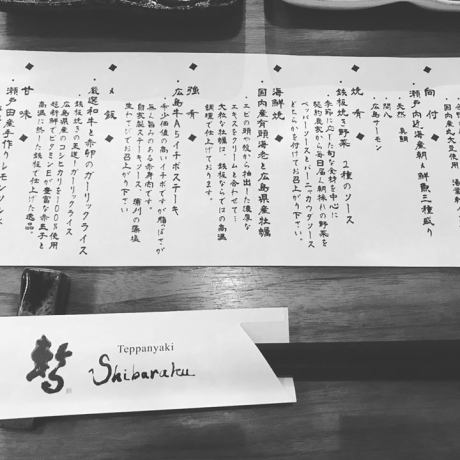 向付
瀬戸内近海産朝〆鮮魚三種盛り
・天然 真鯛
・間八
・広島サーモン
焼肴
・鉄板焼き野菜 2種のソース
季節に応じた旬な食材を中心に
契約農家から毎日届く朝採れの野菜を
ペッパーソースとバーニャカウダソース
どちらかを付けてお召上がり下さい。
海鮮
国内産有頭海老と広島県産牡蠣
エビの頭や殻から抽出した濃厚な
エキスをクリームと合わせて…
大粒な牡蠣は、鉄板ならではの高温
調理で仕上げております。
強肴
広島牛A5イチボステーキ
希少価値の高いイチボですが脂っぽさが
無く旨みのある赤身肉です。
自家製ステーキソース、蒲刈の藻塩
生わさびでお召上がり下さい。
〆飯
・厳選和牛と赤卵のガーリックライス
鉄板焼きの王道!ガーリックライス
広島県産のコシヒカリを100%使用
超新鮮でビタミンEが豊富な赤玉子と
高温に熱した鉄板で仕上げた逸品。
甘味
・瀬戸田産手作りレモンソルベ
Teppanyaki
Shibaraku